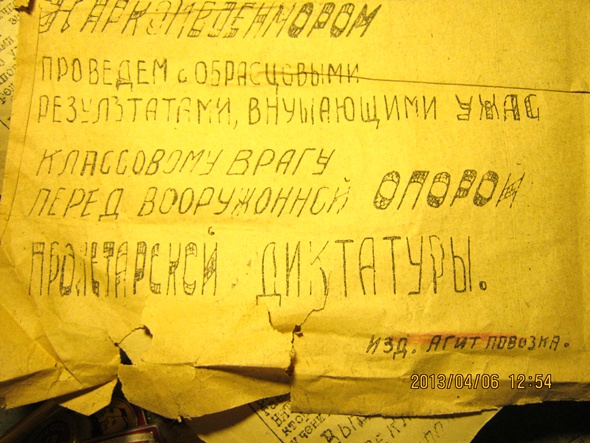 НАРКОМВОЕНМОРОМ
ПРОВЕДЕМ с ОБРАЗЦОВЫМИ
РЕЗУЛЬТАТАМИ, ВНУШАЮЩИМИ УЖАС
КЛАССОВОМУ ВРАГУ
ПЕРЕД ВООРУЖОННОЙ ОПОРОЙ
ПРОЛЕТАРСКОЙ ДИКТАТУРЫ.
ИЗД. АГИТПОВОЗКА.
2013/04/06 12:54